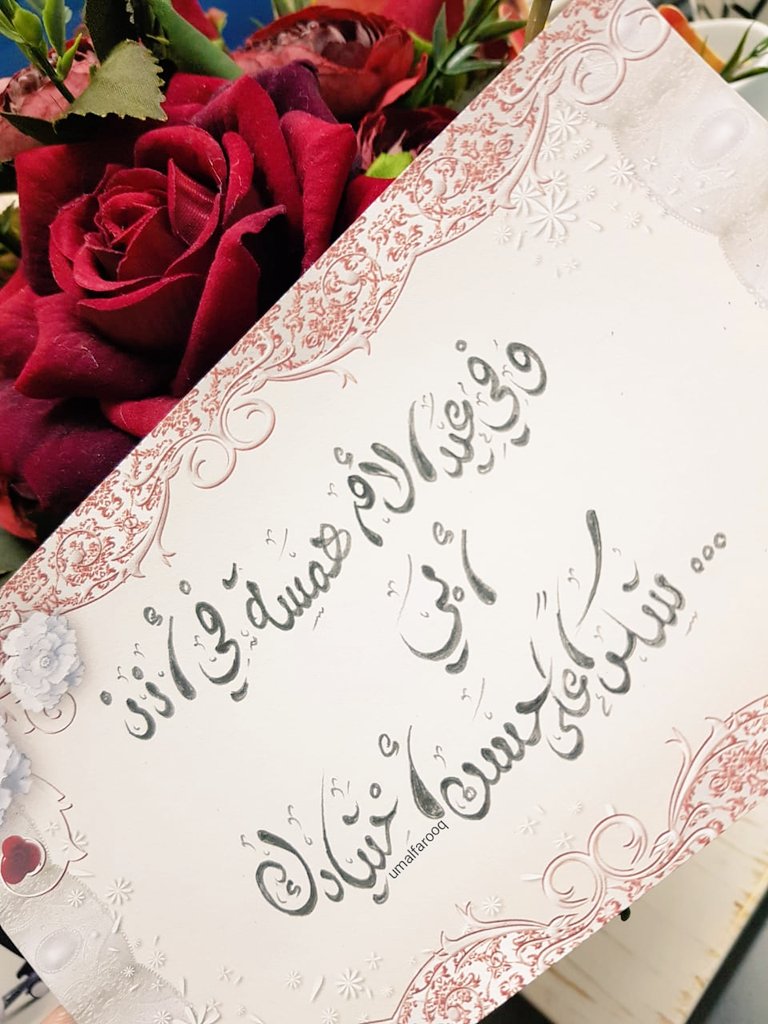 وفي عيد الأم همسة في أذن
أبي
شكرا على حسن أختيارك ...
umalfarooq